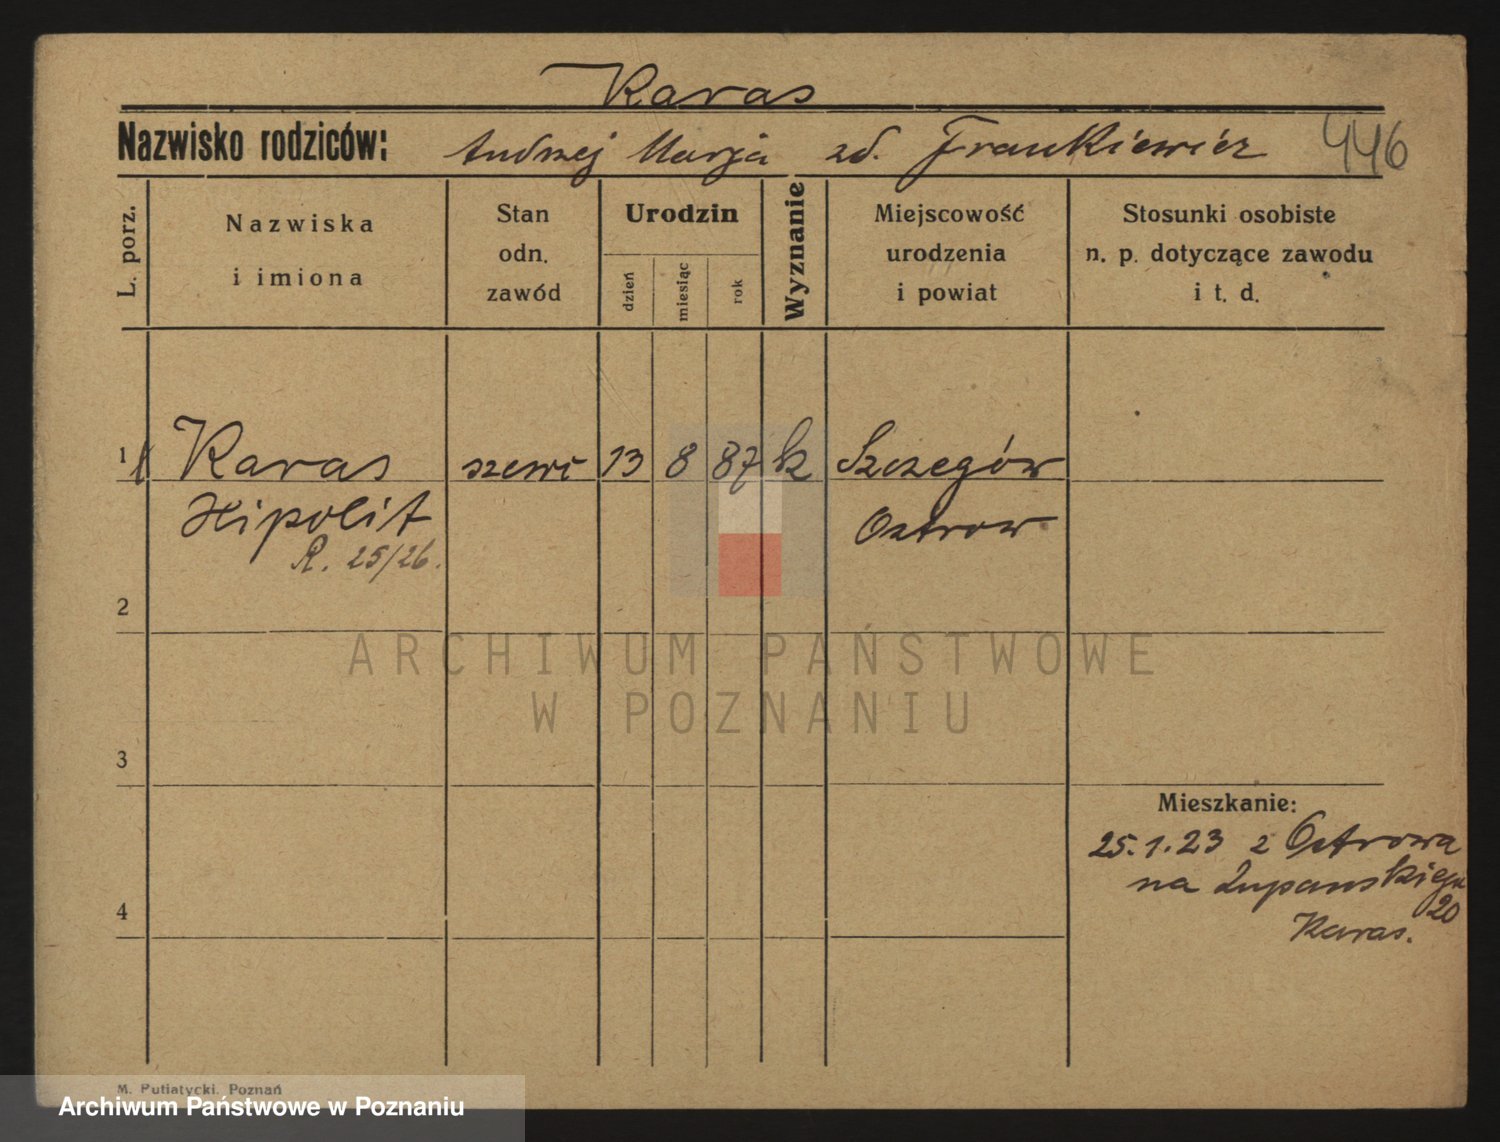 Karas
Nazwisko rodziców: Andrzej Marja zd. Frankiewicz 446
L. porz.
Nazwiska
i imiona
Stan
odn.
zawód
Urodzin
dzień
miesiąc
rok
Wyznanie
Miejscowość
urodzenia
i powiat
Stosunki osobiste
n. p. dotyczące zawodu
i t. d.
1 Karas szewc 13 8 87 k Szczegów
Hipolit Ostrow
R. 25/26.
2
ARCHIWUM PAŃSTWOWE
W POZNANIU
3
Mieszkanie:
25.1.23 z Ostrowa
na Żupanskiego
20
4
Karas.
M. Putiatycki. Poznań
Archiwum Państwowe w Poznaniu